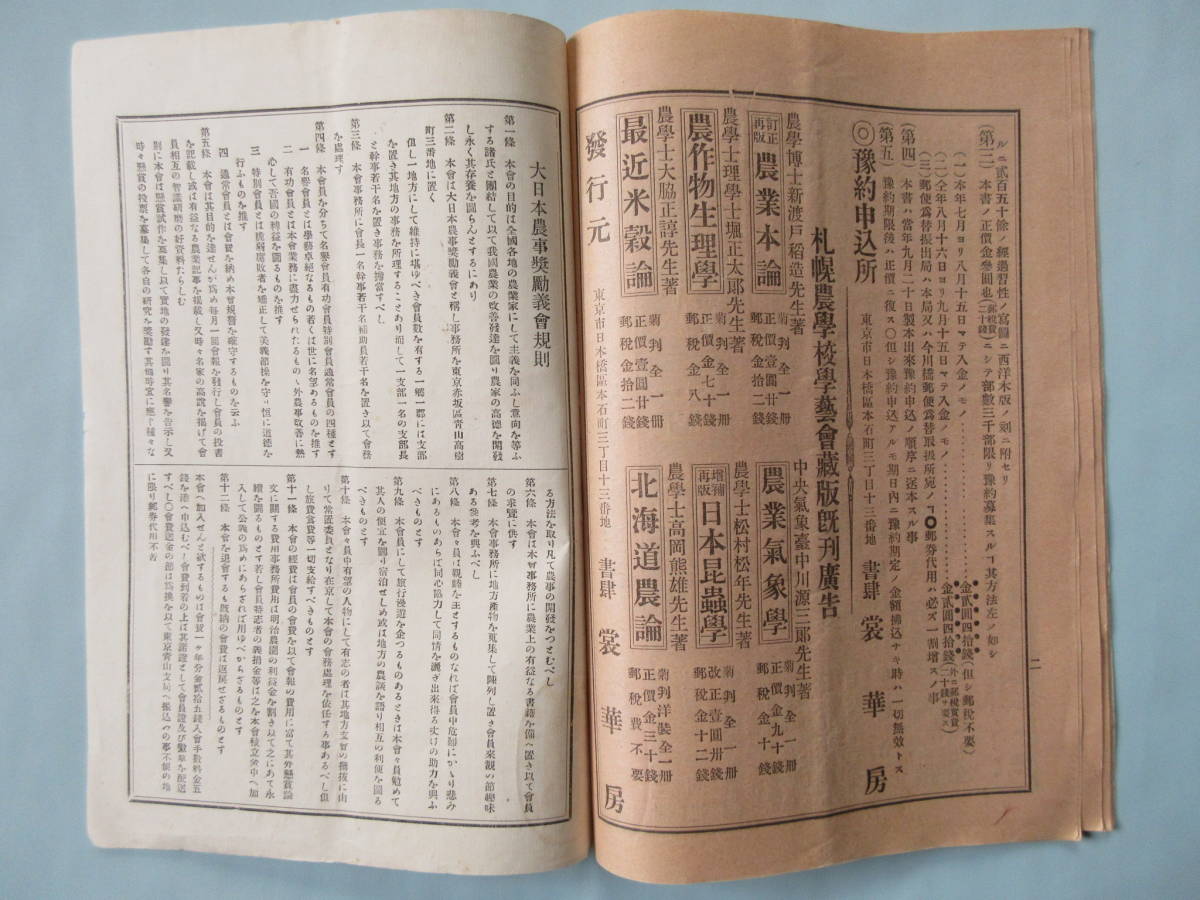 ルニ貳百五十餘ノ經過習性ノ寫圖ニ西洋木版ノ刻ニ附セリ
(第三) 本書ノ正價金參圓也(郵稅實費二十錢)ニシテ部數三千部限リ豫約募集スルヿ其方法左ノ如シ
(一)本年七月ヨリ八月十五日マテ入金ノモノ…………金貳圓四拾錢(但シ郵稅不要)
(二)仝年八月十六日ヨリ九月十五日マテ入金ノモノ…………金貳圓四拾錢(外ニ郵稅實費二十錢ヲ要ス)
(三)郵便爲替振出局ハ本局又ハ今川橋郵便爲替取扱所宛ノヿ〇郵券代用ハ必ズ一割增スノ事
(第四) 本書ハ當年九月二十日製本出來豫約申込ノ順序ニ送本スル事
(第五) 豫約期限後ハ正價ニ復ス〇但シ豫約申込アルモ期日內ニ豫約期定ノ金額拂込ナキ時ハ一切無效トス
◎豫約申込所 東京市日本橋區本石町三丁目十三番地 書肆 裳華房
二
札幌農學校學藝會藏版既刊廣告
農學博士新渡戶稻造先生著
訂正再版 農業本論 菊判全一冊 正價壹圓廿錢 郵稅金拾二錢
農學士理學士堀正太郎先生著
農作物生理學 菊判全一冊 正價金七十錢 郵稅金八錢
農學士大脇正諄先生著
最近米穀論 菊判全一冊 正價壹圓廿錢 郵稅金拾二錢
中央氣象臺中川源三郎先生著
農業氣象學 菊判全一冊 正價金九十錢 郵稅金十錢
農學士松村松年先生著
增補再版 日本昆蟲學 菊判全一冊 改正壹圓卅錢 郵稅金十二錢
農學士高岡熊雄先生著
北海道農論 菊判洋裝全一冊 正價金三十錢 郵稅費不要
發行元 東京市日本橋區本石町三丁目十三番地 書肆 裳華房
大日本農事獎勵義會規則
第一條 本會の目的は全國各地の農業家にして主義を同ふし意向を等ふする諸氏と團結して以て我國農業の改善發達を圖り農家の高德を開發し永く其存養を圖らんとするにあり
第二條 本會は大日本農事獎勵義會と稱し事務所を東京赤坂區靑山高樹町三番地に置く
但し一地方にして維持に堪ゆべき會員數を有する一鄕一郡には支部を置き其地方の事務を所理することあり而して一支部一名の支部長と幹事若干名を置き事務を擔當すべし
第三條 本會事務所に會長一名幹事若干名補助員若干名を置き以て會務を處理す
第四條 本會員を分ちて名譽會員有功會員特別會員通常會員の四種とす
一 名譽會員とは學務卓絕なるもの若くは世に名望あるものを推す
二 有功會員とは本會業務に盡力せられたるもの、外農事改善に熱心して吾國の稗益を圖るものを推す
三 特別會員とは脆弱腐敗者を矯正して美義節操を守り恒に道德を行ふものを推す
四 通常會員とは會費を納め本會規習を確守するものを云ふ
第五條 本會は其目的を達せんが爲め每月一回會報を發行し會員の投書を記載し或は有益なる農業記事を揭載し又時々名家の高說を揭げて會員相互の智識研磨の好資料たらしむ
則に本會は懸賞試作を募集し以て實地の發達を圖り其名譽を告示し又時々懸賞の投票を募集して各自の研究を獎勵す其他時宜に應じ種々なる方法を取り凡て農事の開發をつとむべし
第六條 本會は本會事務所に農業上の有益なる書籍を備へ置き以て會員の求覽に供す
第七條 本會事務所に地方產物を蒐集して陳列し置き會員來觀の節趣味ある參考を與ふべし
第八條 本會々員は親睦を主とするものなれば會員中危難にかゝり悲みにあるものあらば同心協力して同情を濺ぎ出來得る丈けの助力を與ふべきものとす
第九條 本會々員にして旅行漫遊を企つるものあるときは本會々員勉めて其人の便宜を圖り宿泊せしめ或は地方の農談を語り相互の利便を圖るべきものとす
第十條 本會々員中有望の人物にして有志の者は其地方支會の撰拔に由りて常置委員となり在京して本會の會務處理を依任する事あるべし但し旅費食費等一切支給すべきものとす
第十一條 本會の經費は會員の會費を以て會報の費用に當て其外懸賞論文に關する費用事務所費用は明治農園の利益金を割き以て之にあて永續を圖るものとす若し會員特志者の義捐金等は之を本會積立金中へ加入して公義の爲めにあらざれば用ゆべからざるものとす
第十二條 本會を退會するも既納の會費は返戾せざるものとす
本會へ加入せんと欲するものは會費一ヶ年分金貳拾五錢入會手數料金五錢を添へ申込むべし會費到着の上は其謝證として會員證及び徽章を配送すべし〇會費送金の節は爲換を以て東京靑山支局へ振込みの事不便の地に限り郵券代用不苦